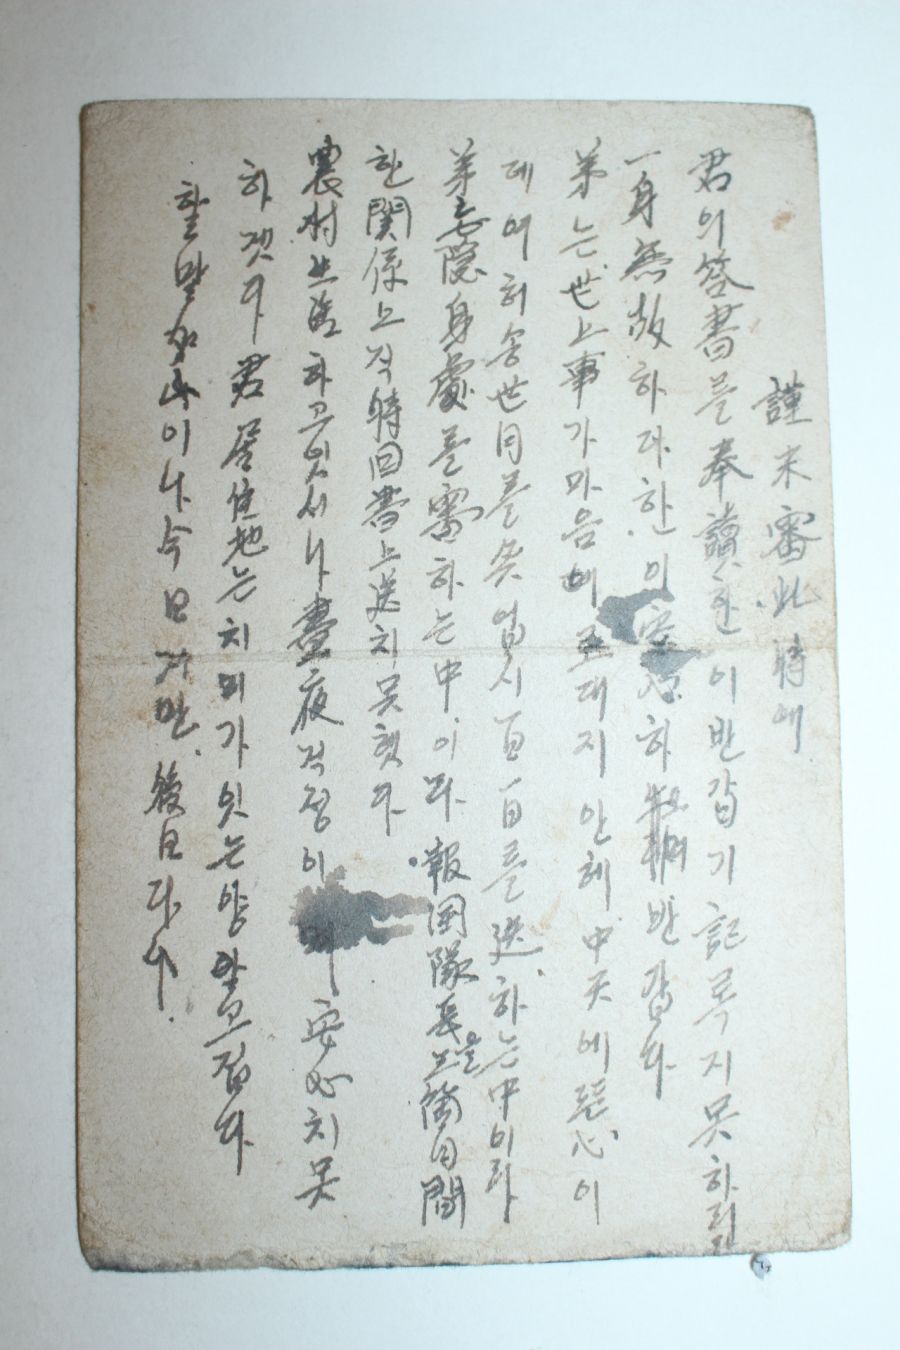 謹未審此時에
君의答書를奉讀한이반갑기記록지못하리
一身無故하다한이安心하 반갑다
弟는世上事가마음에 대지안헤中天에 心이
데여허송世月를 업시一日一日를送하는中이라
弟 隱身處를 하는中이다報国隊로 三個月間
한関係上직時回書上送치못햇다
農村生活하고잇시나晝夜걱정이 安心치못
하겟다君居住地는치미가잇는양알고접다
할말 이나今日거만後日다시